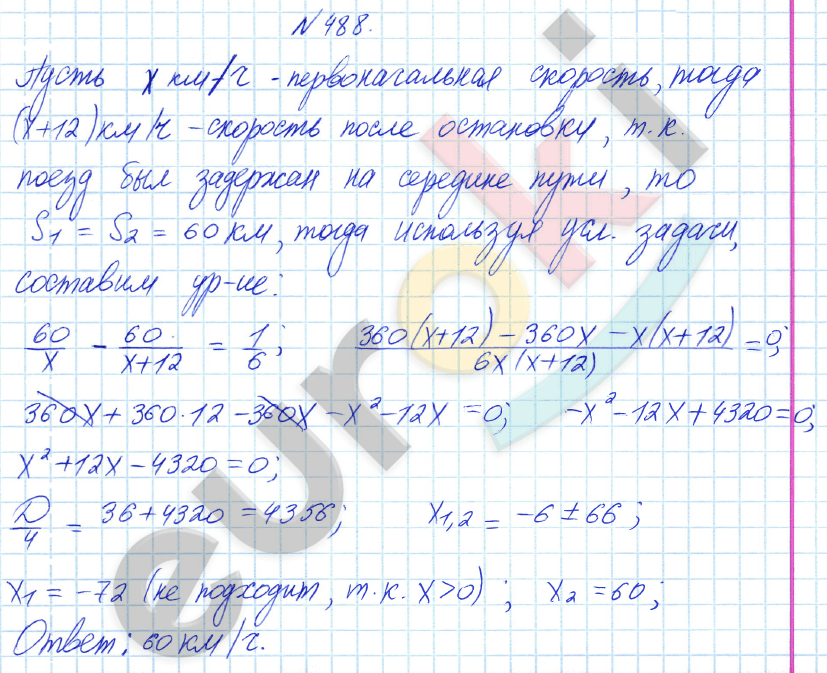 № 488.
Пусть x км/ч - первоначальная скорость, тогда
(x+12) км/ч - скорость после остановки, т.к.
поезд был задержан на середине пути, то
S₁ = S₂ = 60 км, тогда используя усл. задачи,
составим ур-ие:
60/x - 60/(x+12) = 1/6; (360(x+12) - 360x - x(x+12))/(6x(x+12)) = 0;
360x + 360·12 - 360x - x² - 12x = 0; -x² - 12x + 4320 = 0;
x² + 12x - 4320 = 0;
D/4 = 36 + 4320 = 4356; x₁,₂ = -6 ± 66;
x₁ = -72 (не подходит, т.к. x>0); x₂ = 60;
Ответ: 60 км/ч.
euroki